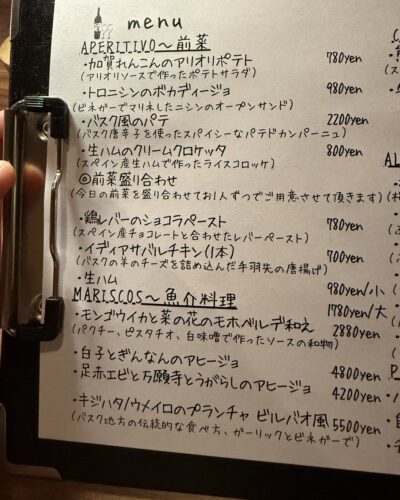 menu
APERITIVO～前菜
・加賀れんこんのアリオリポテト 780yen
(アリオリソースで作ったポテトサラダ)
・トロニシンのボカディージョ 980yen
(ビネガーでマリネしたニシンのオープンサンド)
・バスク風のパテ 2200yen
(バスク唐辛子を使ったスパイシーなパテドカンパーニュ)
・生ハムのクリームクロケッタ 800yen
(スペイン産生ハムで作ったライスコロッケ)
◎前菜盛り合わせ
(今日の前菜を盛り合わせてお1人ずつでご用意させて頂きます)
・鶏レバーのショコラペースト 780yen
(スペイン産チョコレートと合わせたレバーペースト)
・イディアサバルチキン(1本) 700yen
(バスクの羊のチーズを詰め込んだ手羽先の唐揚げ)
・生ハム 980yen/小
1780yen/大
MARISCOS～魚介料理
・モンゴウイカと菜の花のモホベルデ和え 2880yen
(パクチー、ピスタチオ、白味噌で作ったソースの和物)
・白子とぎんなんのアヒージョ 4800yen
・足赤エビと万願寺とうがらしのアヒージョ 4200yen
・キジハタ/ウメイロのプランチャ ビルバオ風 5500yen
(バスク地方の伝統的な食べ方、ガーリックとビネガーで)